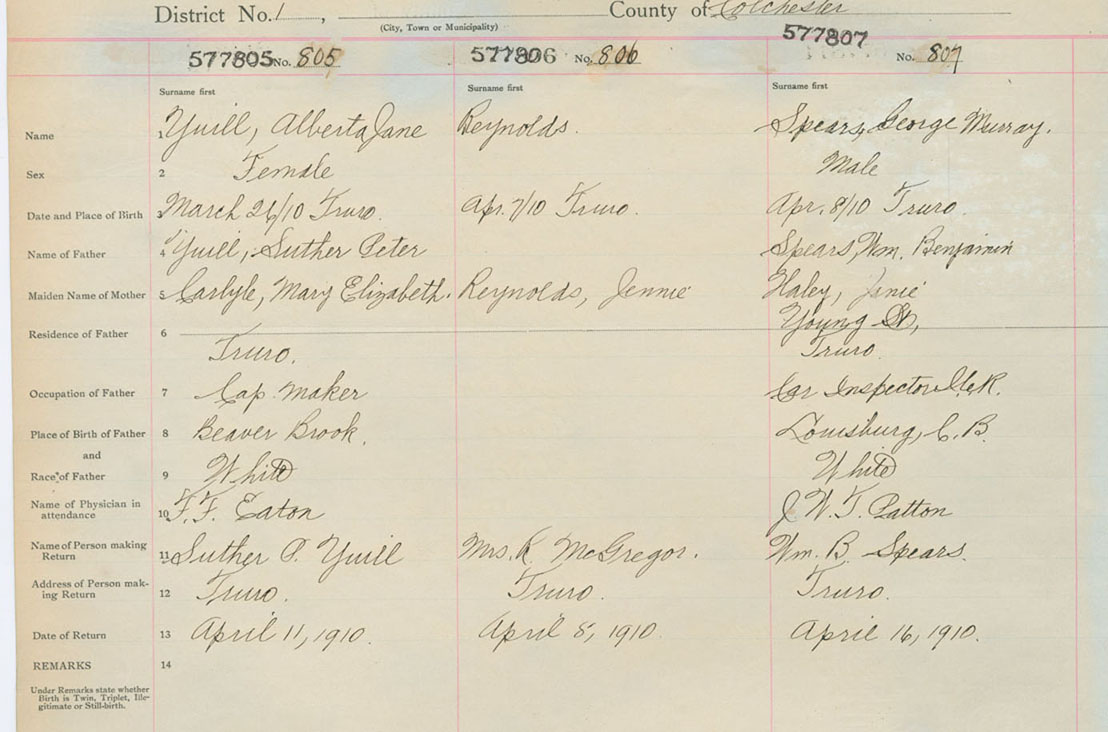 District No. 1, County of Colchester
(City, Town or Municipality)
577805 No. 805 577806 No. 806 577807 No. 807
Surname first Surname first Surname first
Name 1 Yuill, Alberta Jane Reynolds. Spears, George Murray.
Sex 2 Female Male
Date and Place of Birth 3 March 26/10 Truro. Apr. 7/10 Truro. Apr. 8/10 Truro.
Name of Father 4 Yuill, Luther Peter Spears, Wm. Benjamin
Maiden Name of Mother 5 Carlyle, Mary Elizabeth. Reynolds, Jennie Haley, Janie
Residence of Father 6 Young St,
Truro. Truro.
Occupation of Father 7 Cap Maker Car Inspector
Place of Birth of Father 8 Beaver Brook. Louisburg, C. B.
and
Race of Father 9 White White
Name of Physician in
attendance 10 F. F. Eaton J. W. T. Patton
Name of Person making
Return 11 Luther P. Yuill Mrs. K McGregor. Wm. B. Spears.
Address of Person mak-
ing Return 12 Truro. Truro. Truro.
Date of Return 13 April 11, 1910. April 8, 1910. April 16, 1910.
REMARKS 14
Under Remarks state whether
Birth is Twin, Triplet, Ille-
gitimate or Still-birth.